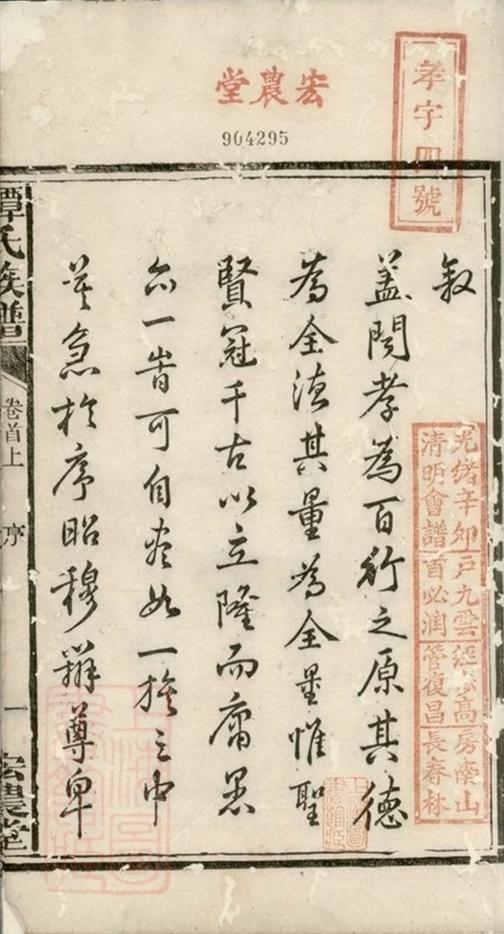 宏農堂
904295
孝字四號
叙
盖聞孝為百行之原其德
為全德其量為全量惟聖
賢冠千古以立隆而庸愚
亦一旹可自盡如一族之中
莫急於序昭穆辨尊卑
光緒辛卯戶九雲經高房南山
清明會譜首必润管復昌長春林
譚氏族譜
卷首上
序
一
宏農堂